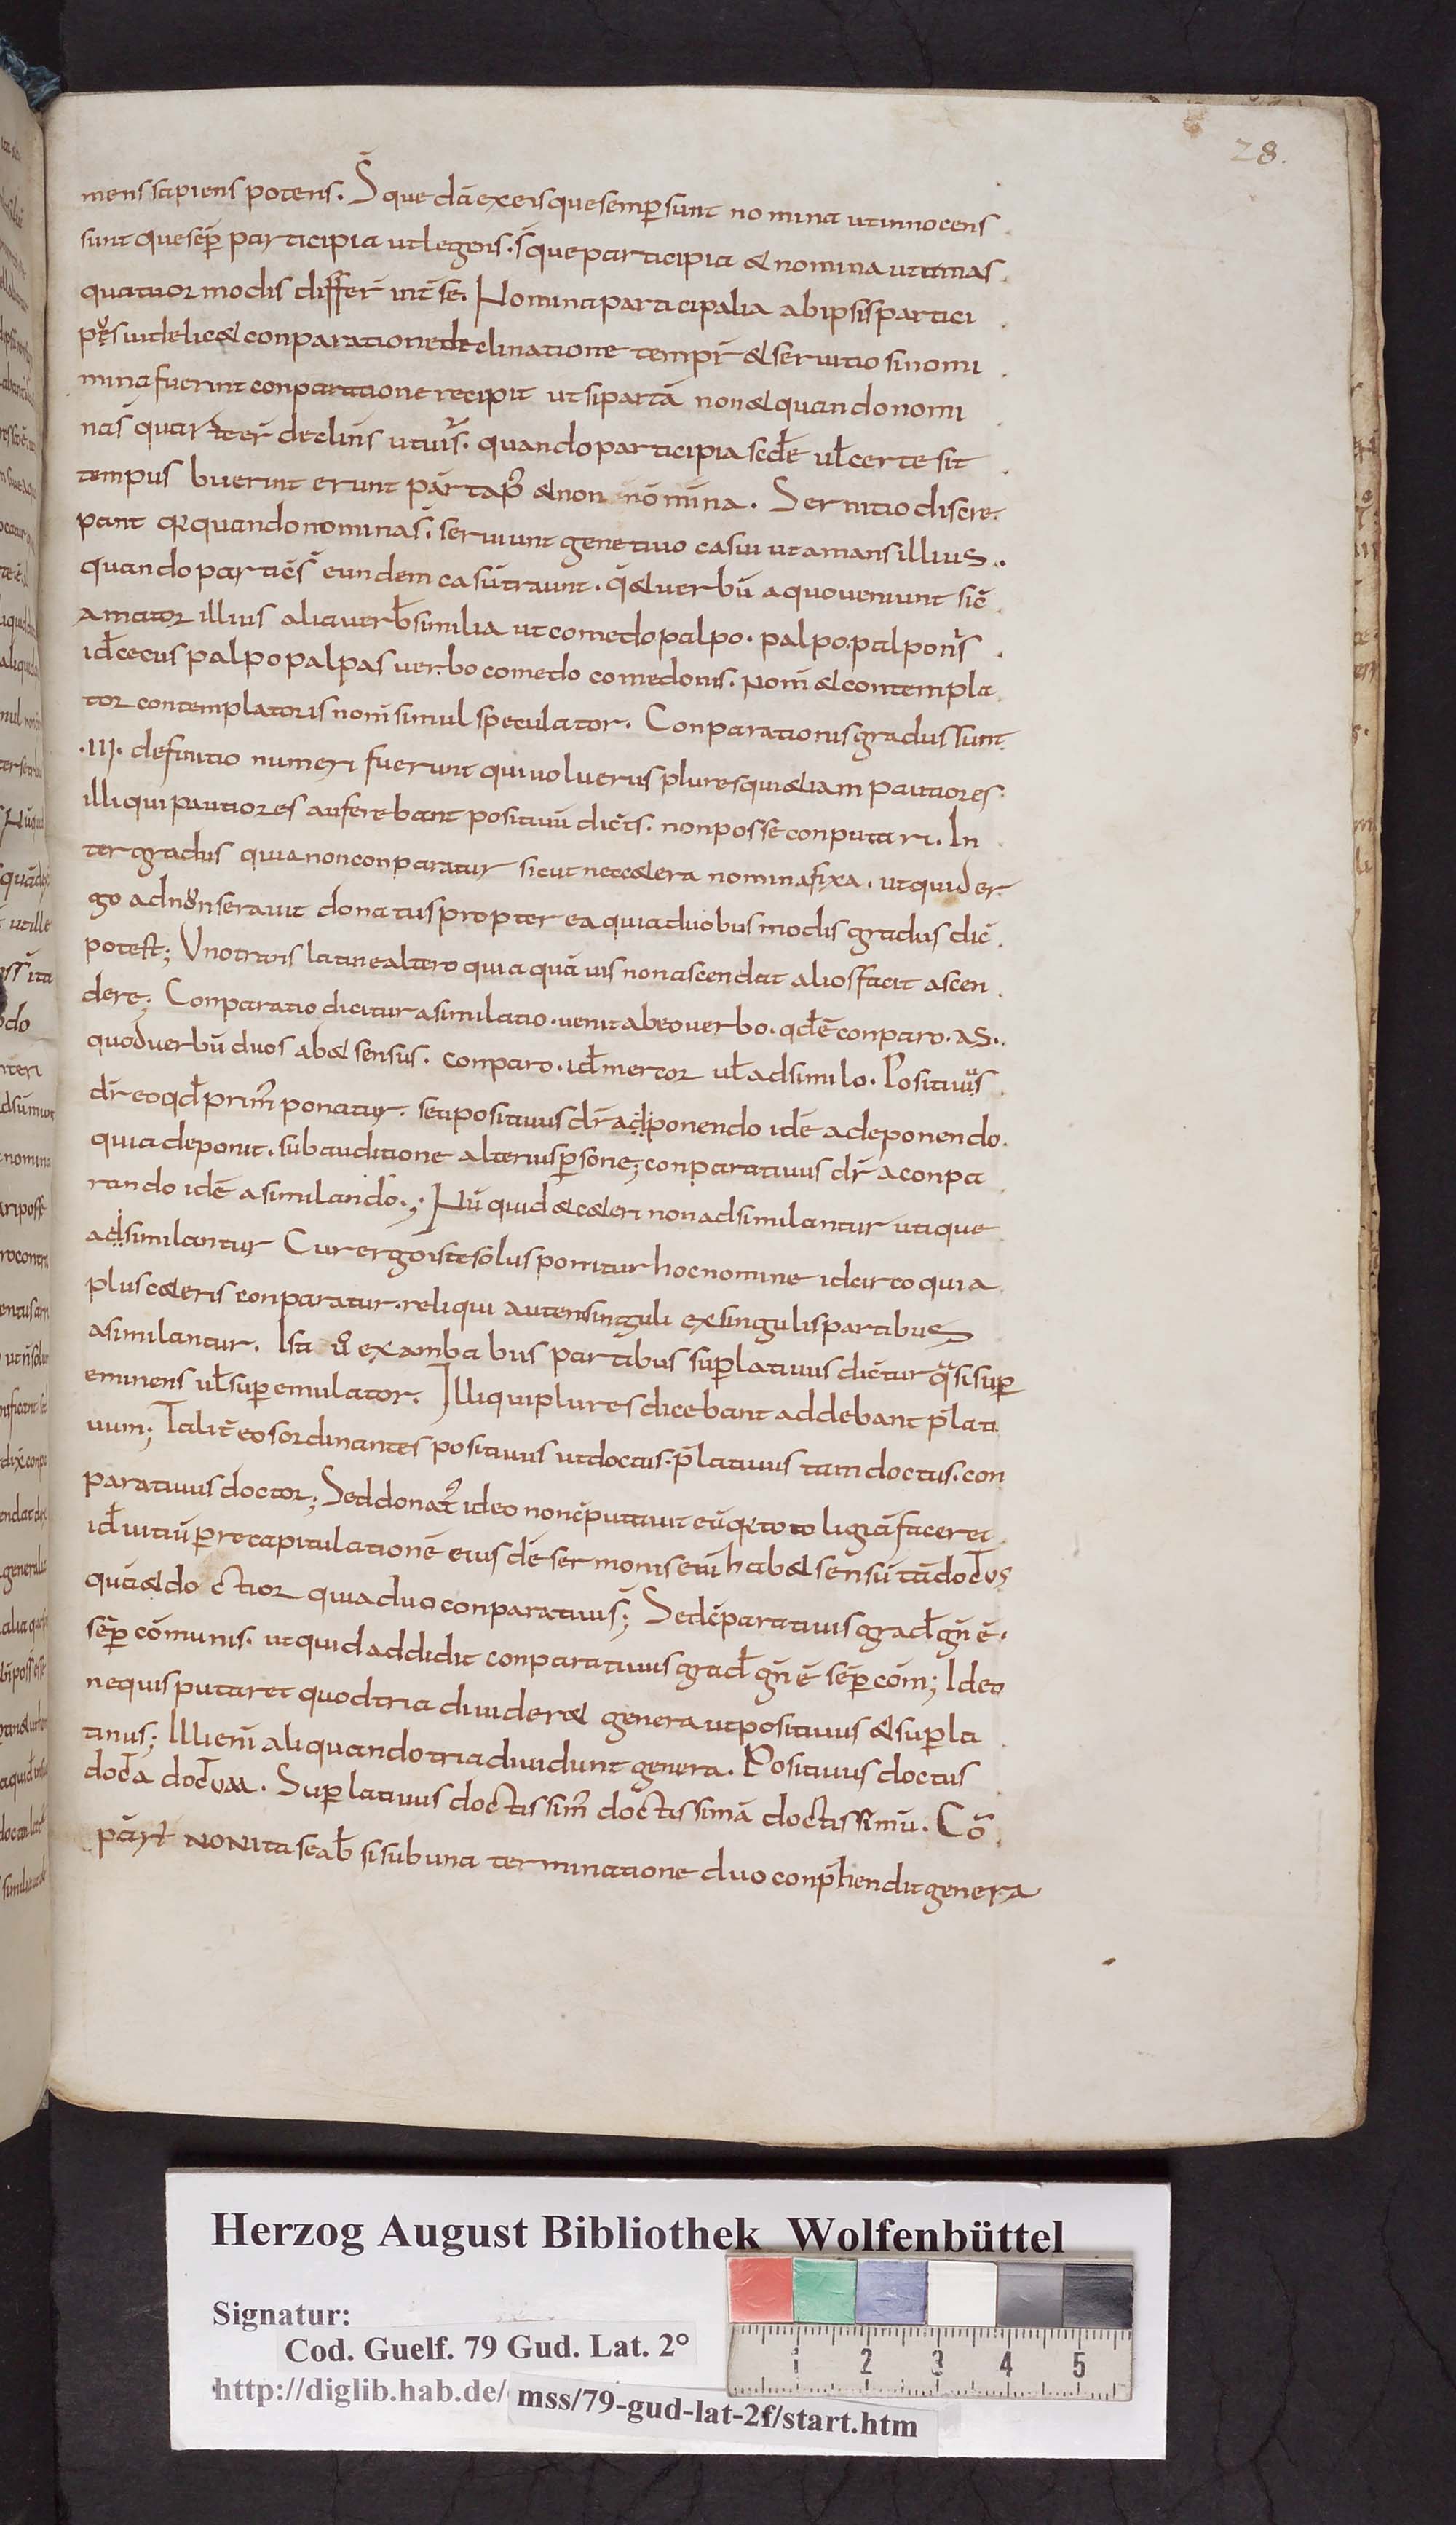 28.
mens sapiens potens. S̄ que dā ex eis que semp̄ sunt nomina ut innocens
sunt que sēp participia ut legens. s̄ que participia & nomina ut amas
quatuor modis differ̄ int̄ se. Nomina participalia ab ipsis partici
uidelic& conparatione declinatione temp̄r & seruitio si nomi
mina fuerint conparatione recipit ut si partā non & quando nomi
nas̄ quar ter̄ declin̄s quando participia ul̄ certe sit
tempus buerint erunt & non nōmina. Seruitio discre
pant quando nomina s̄. seruiunt genetiuo casui ut amans illius..
quando partic̄s eundem casū traunt. q̄ & uerbū a quo ueniunt sic̄
amator illius alia uerb̄ similia ut comedo palpo. palpo. palpon̄s
id̄ cecus palpo palpas uerbo comedo comedonis. nom̄ & contempla
tor contemplatoris nom̄ simul speculator. Conparationis gradus sunt
.III. definitio numeri fuerunt qui uoluerus plures qui &iam pautiores
illi qui pautiores auferebant positiuū dic̄ts. non posse conputari. In
ter gradus quia non conparatur sicut nec c&era nomina fixa. ut quid er
go adn̄ seruauit donatus propter ea quia duobus modis gradus dic̄
potest; Uno translatine altero quia quā uis non ascendat alios facit ascen
dere; Conparatio dicitur asimilatio. uenit ab eo uerbo. qd̄ ē conparo. AS..
quod uerbū duos ab& sensus. conparo. id̄ mercor ul̄ adsimilo. Positiuus
dr̄ eo qd̄ prim̄ ponatur. seu positiuus dr̄ adponendo idē a deponendo.
quia deponit. subauditione alterius p̄sone; conparatiuus dr̄ a conpa
rando idē asimilando.; Nū quid & c&eri non adsimilantur utique
adsimilantur Cur ergo iste solus ponitur hoc nomine idcirco quia
plus c&eris conparatur. reliqui autem singuli ex singulis partibus
asimilantur. Ista ex ambabus partibus sup̄latiuus dic̄tur q̄si sup̄
eminens ul̄ sup̄ emulator. Illi qui plures dicebant addebant p̄lati
uum; Talit̄ eos ordinantes positiuus ut doctus. p̄latiuus tam doctus. con
paratiuus doctor; Sed donat᾽ ideo non c̄putauit eū toto ligiā faceret
id̄ uitiū p̄ recapitulationē eius dē sermonis etiā hab& sensū tā doctus
quā & doctior quia duo conparatiui s̄; Sed c̄paratiuis grad̄ gn̄ ē.
sēp cōmunis. ut quid addidit conparatiuus grad̄ gn̄ ē sēp com̄; Ideo
ne quis putaret quod tria diuider& genera ut positiuus & sup̄la
tiuus; Illi enī aliquando tria diuidunt genera. Positiuus doctus
docta doctum. Sup̄latiuus doctissim᾽ doctissimā doctissimū. Cō
part̄ NON ita se ab̄ si sub una terminatione duo conp̄hendit genera
Herzog August Bibliothek Wolfenbüttel
Signatur:
Cod. Guelf. 79 Gud. Lat. 2°
http://diglib.hab.de/ mss/79-gud-lat-2f/start.htm
1 2 3 4 5